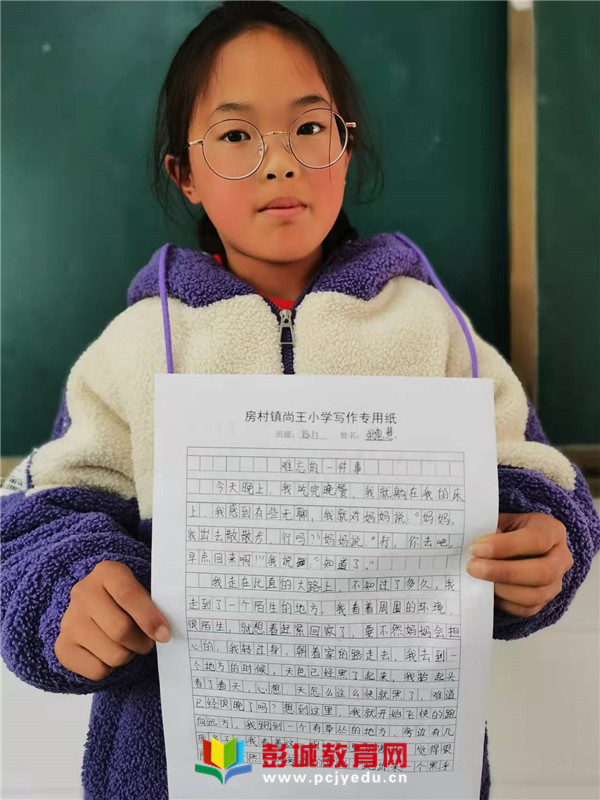 房村镇尚王小学写作专用纸
班级: 姓名:
难忘的一件事
今天晚上,我吃完晚餐,我就躺在我的床
上,我感到有些无聊,我就对妈妈说:“妈妈,
我出去散散步,行吗?”妈妈说:“行,你去吧,
早点回来啊!”我说:“知道了。”
我走在比直的大路上,不知过了多久,我
走到了一个陌生的地方,我看着周围的环境,
很陌生,就想着赶紧回家了,要不然妈妈会担
心的,我转过身,朝着家的路走去,我去到一
个地方的时候,天色已经黑了起来,我抬起头
看了看天,心想:天怎么这么快就黑了,难道
已经很晚了吗?想到这里,我就开始飞快的跑
向远方,我跑到一个有草丛的地方,旁边有几
觉得很
个黑乎
彭城教育网
www.pcjyedu.cn